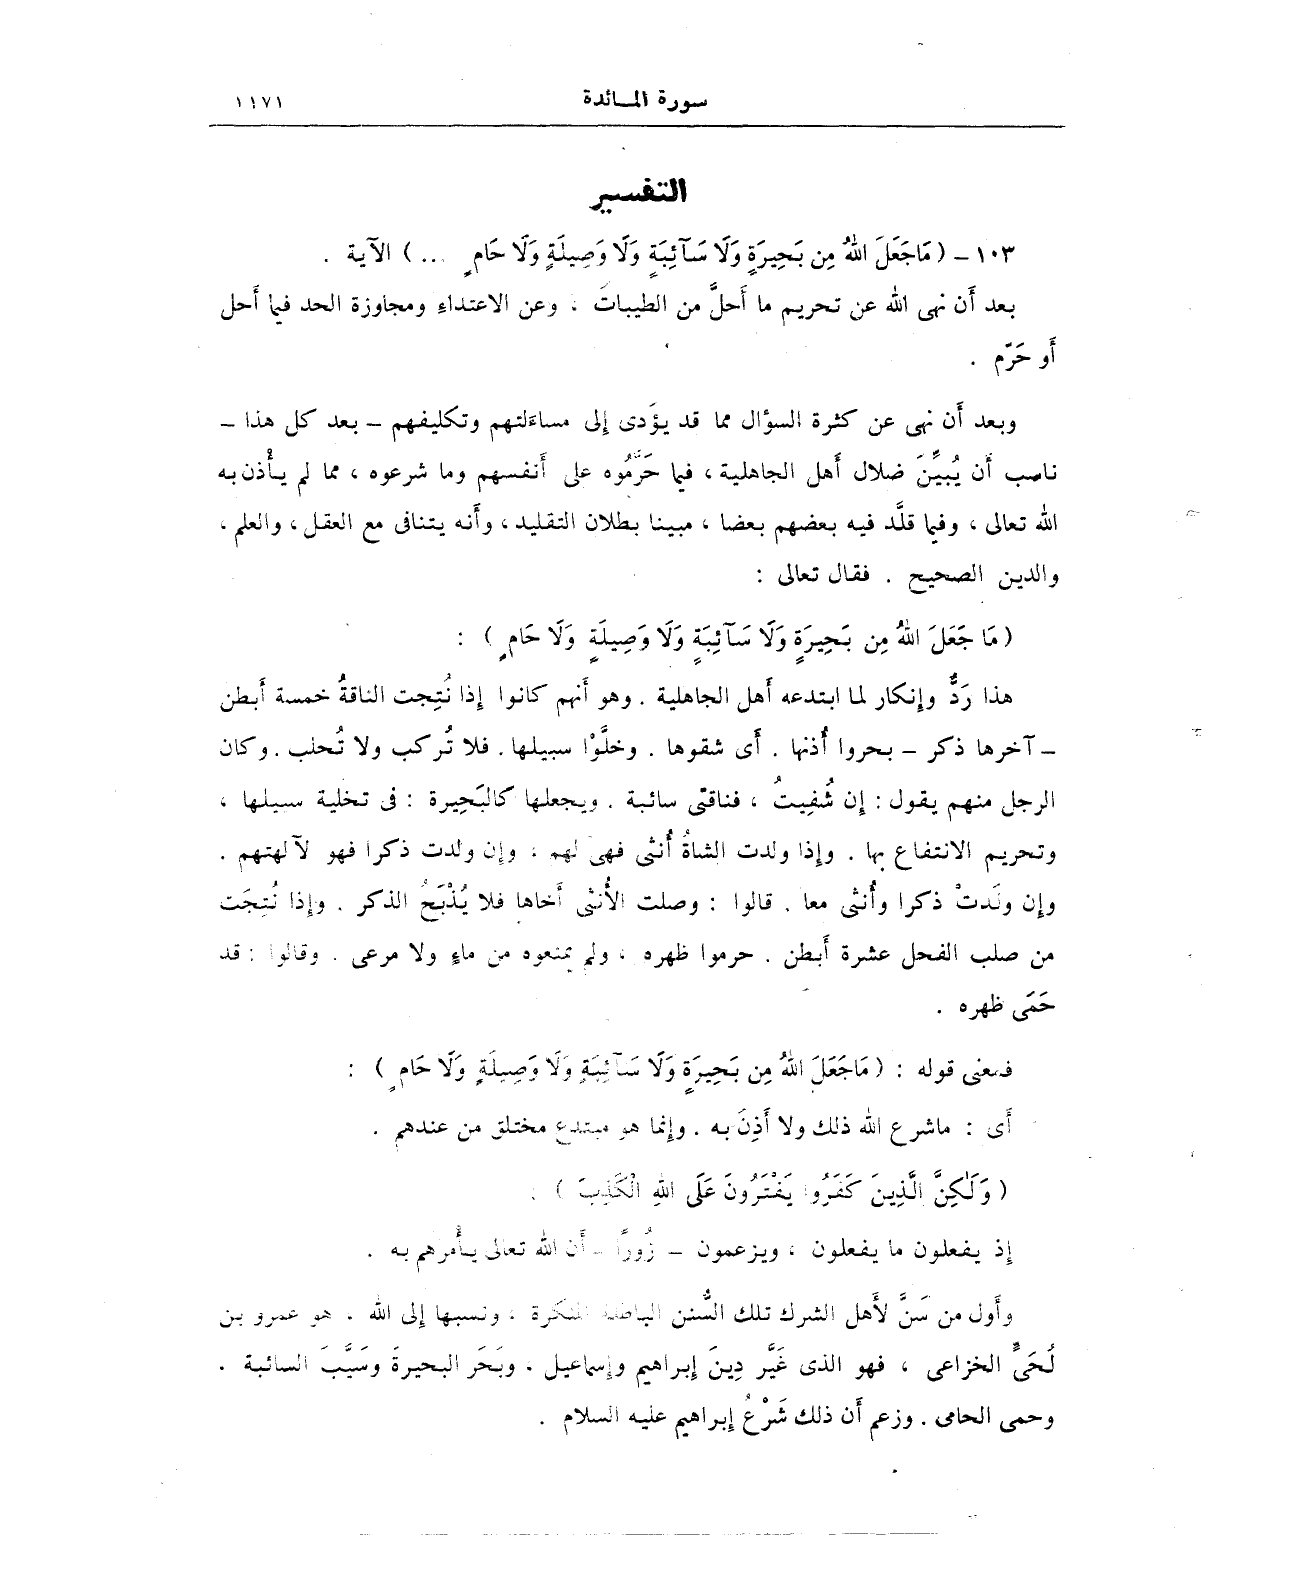 سورة المائدة ١١٧١
التفسير
١٠٣ – ( مَا جَعَلَ اللهُ مِن بَحِيرَةٍ وَلَا سَآئِبَةٍ وَلَا وَصِيلَةٍ وَلَا حَامٍ ... ) الآية .
بعد أَن نهى الله عن تحريم ما أَحلَّ من الطيبات ، وعن الاعتداءِ ومجاوزة الحد فيما أَحل
أَو حَرّم .
وبعد أَن نهى عن كثرة السؤال مما قد يؤَدى إلى مساءَلتهم وتكليفهم – بعد كل هذا –
ناسب أَن يُبيِّنَ ضلال أَهل الجاهلية ، فيما حَرَّمُوه على أَنفسهم وما شرعوه ، مما لم يأْذن به
الله تعالى ، وفيما قلَّد فيه بعضهم بعضا ، مبينا بطلان التقليد ، وأَنه يتنافى مع العقل ، والعلم ،
والدين الصحيح . فقال تعالى :
( مَا جَعَلَ اللهُ مِن بَحِيرَةٍ وَلَا سَآئِبَةٍ وَلَا وَصِيلَةٍ وَلَا حَامٍ ) :
هذا رَدٌّ وإنكار لما ابتدعه أَهل الجاهلية . وهو أَنهم كانوا إذا نُتِجت الناقةُ خمسة أَبطن
– آخرها ذكر – بحروا أُذنها . أَى شقوها . وخلَّوْا سبيلها . فلا تُركب ولا تُحلب . وكان
الرجل منهم يقول : إن شُفِيتُ ، فناقتى سائبة . ويجعلها كالبَحِيرة : فى تخلية سبيلها ،
وتحريم الانتفاع بها . وإذا ولدت الشاةُ أُنثى فهى لهم ، وإن ولدت ذكرا فهو لآلهتهم .
وإن ولَدتْ ذكرا وأُنثى معا . قالوا : وصلت الأُنثى أَخاها فلا يُذْبَحُ الذكر . وإذا نُتِجَت
من صلب الفحل عشرة أَبطن . حرموا ظهره ، ولم يمنعوه من ماءٍ ولا مرعى . وقالوا : قد
حَمَى ظهره .
فمعنى قوله : ( مَا جَعَلَ اللهُ مِن بَحِيرَةٍ وَلَا سَآئِبَةٍ وَلَا وَصِيلَةٍ وَلَا حَامٍ ) :
أَى : ماشرع الله ذلك ولا أَذِنَ به . وإنما هو مبتدع مختلق من عندهم .
( وَلَٰكِنَّ الَّذِينَ كَفَرُوا يَفْتَرُونَ عَلَى اللهِ الْكَذِبَ ) :
إذ يفعلون ما يفعلون ، ويزعمون – زُورًا – أَن الله تعالى يأْمرهم به .
وأَول من سَنَّ لأَهل الشرك تلك السُّنن الباطلة المنكرة ، ونسبها إلى الله . هو عمرو بن
لُحَىٍّ الخزاعى ، فهو الذى غَيَّر دِينَ إبراهيم وإسماعيل . وبَحَر البحيرةَ وسَيَّبَ السائبة .
وحمى الحامى . وزعم أَن ذلك شَرْعُ إبراهيم عليه السلام .